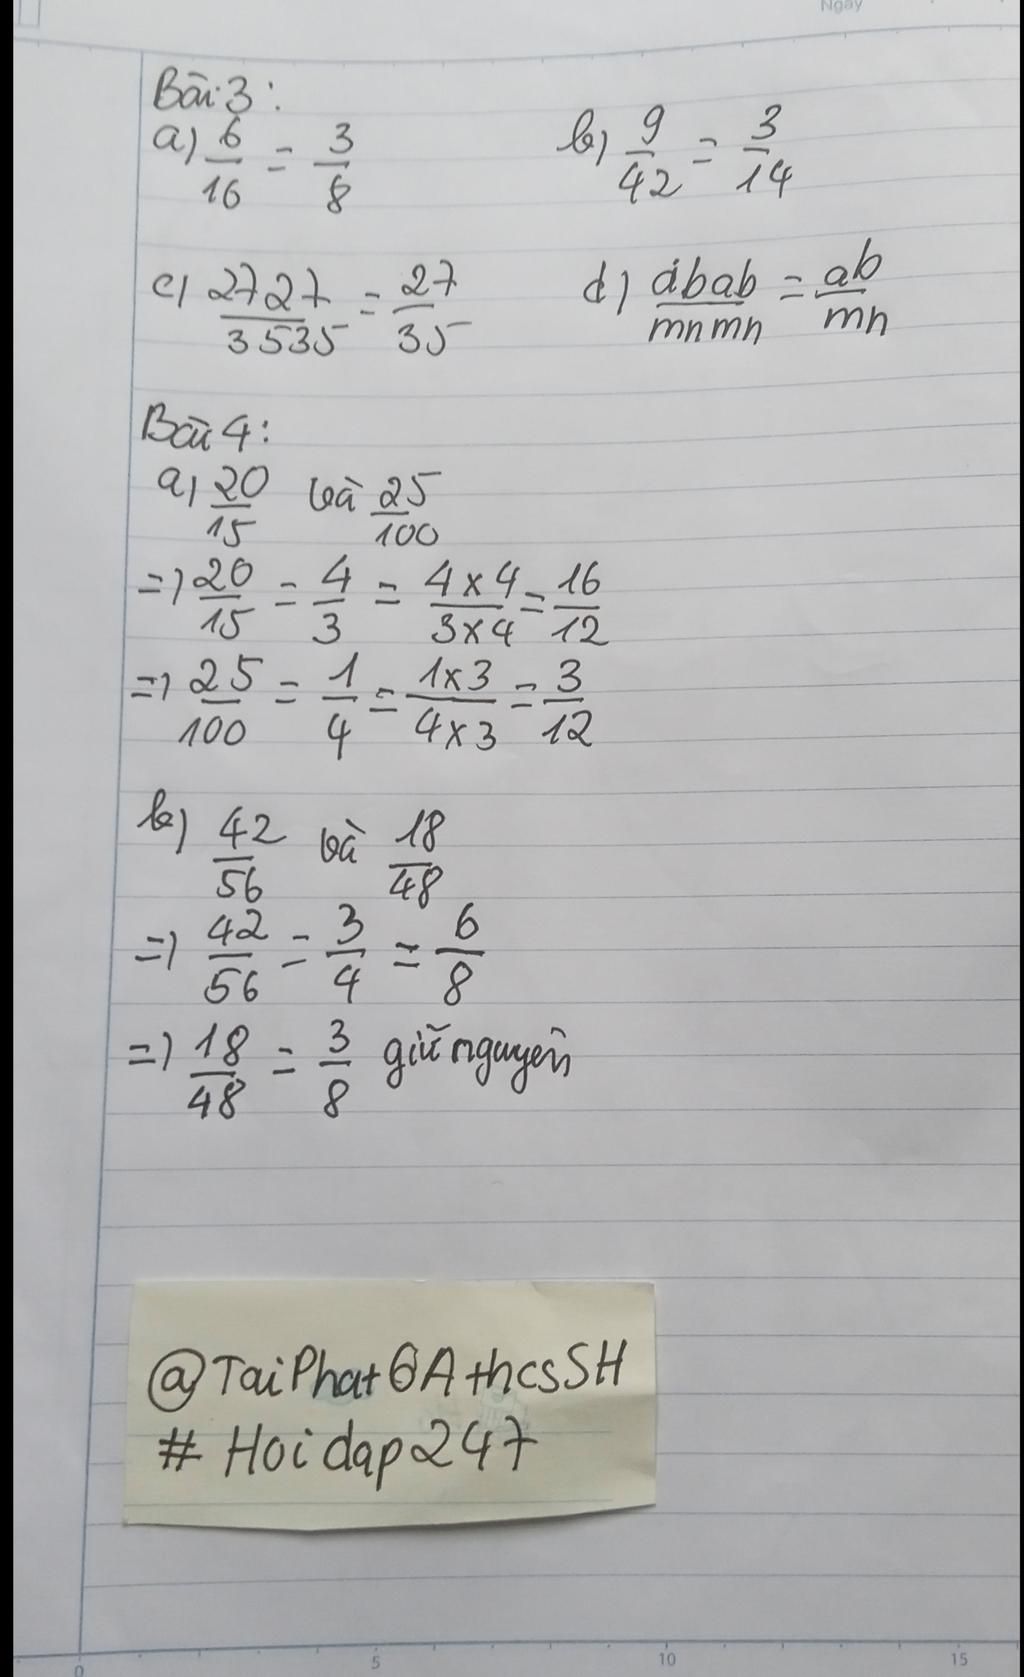 Ngày
Bài 3:
a) 6/16 = 3/8 b) 9/42 = 3/14
c) 2727/3535 = 27/35 d) abab/mnmn = ab/mn
Bài 4:
a) 20/15 và 25/100
=) 20/15 = 4/3 = 4x4/3x4 = 16/12
=) 25/100 = 1/4 = 1x3/4x3 = 3/12
b) 42/56 và 18/48
=) 42/56 = 3/4 = 6/8
=) 18/48 = 3/8 giữ nguyên
@TaiPhat6AthcsSH
# Hoidap247
0 5 10 15